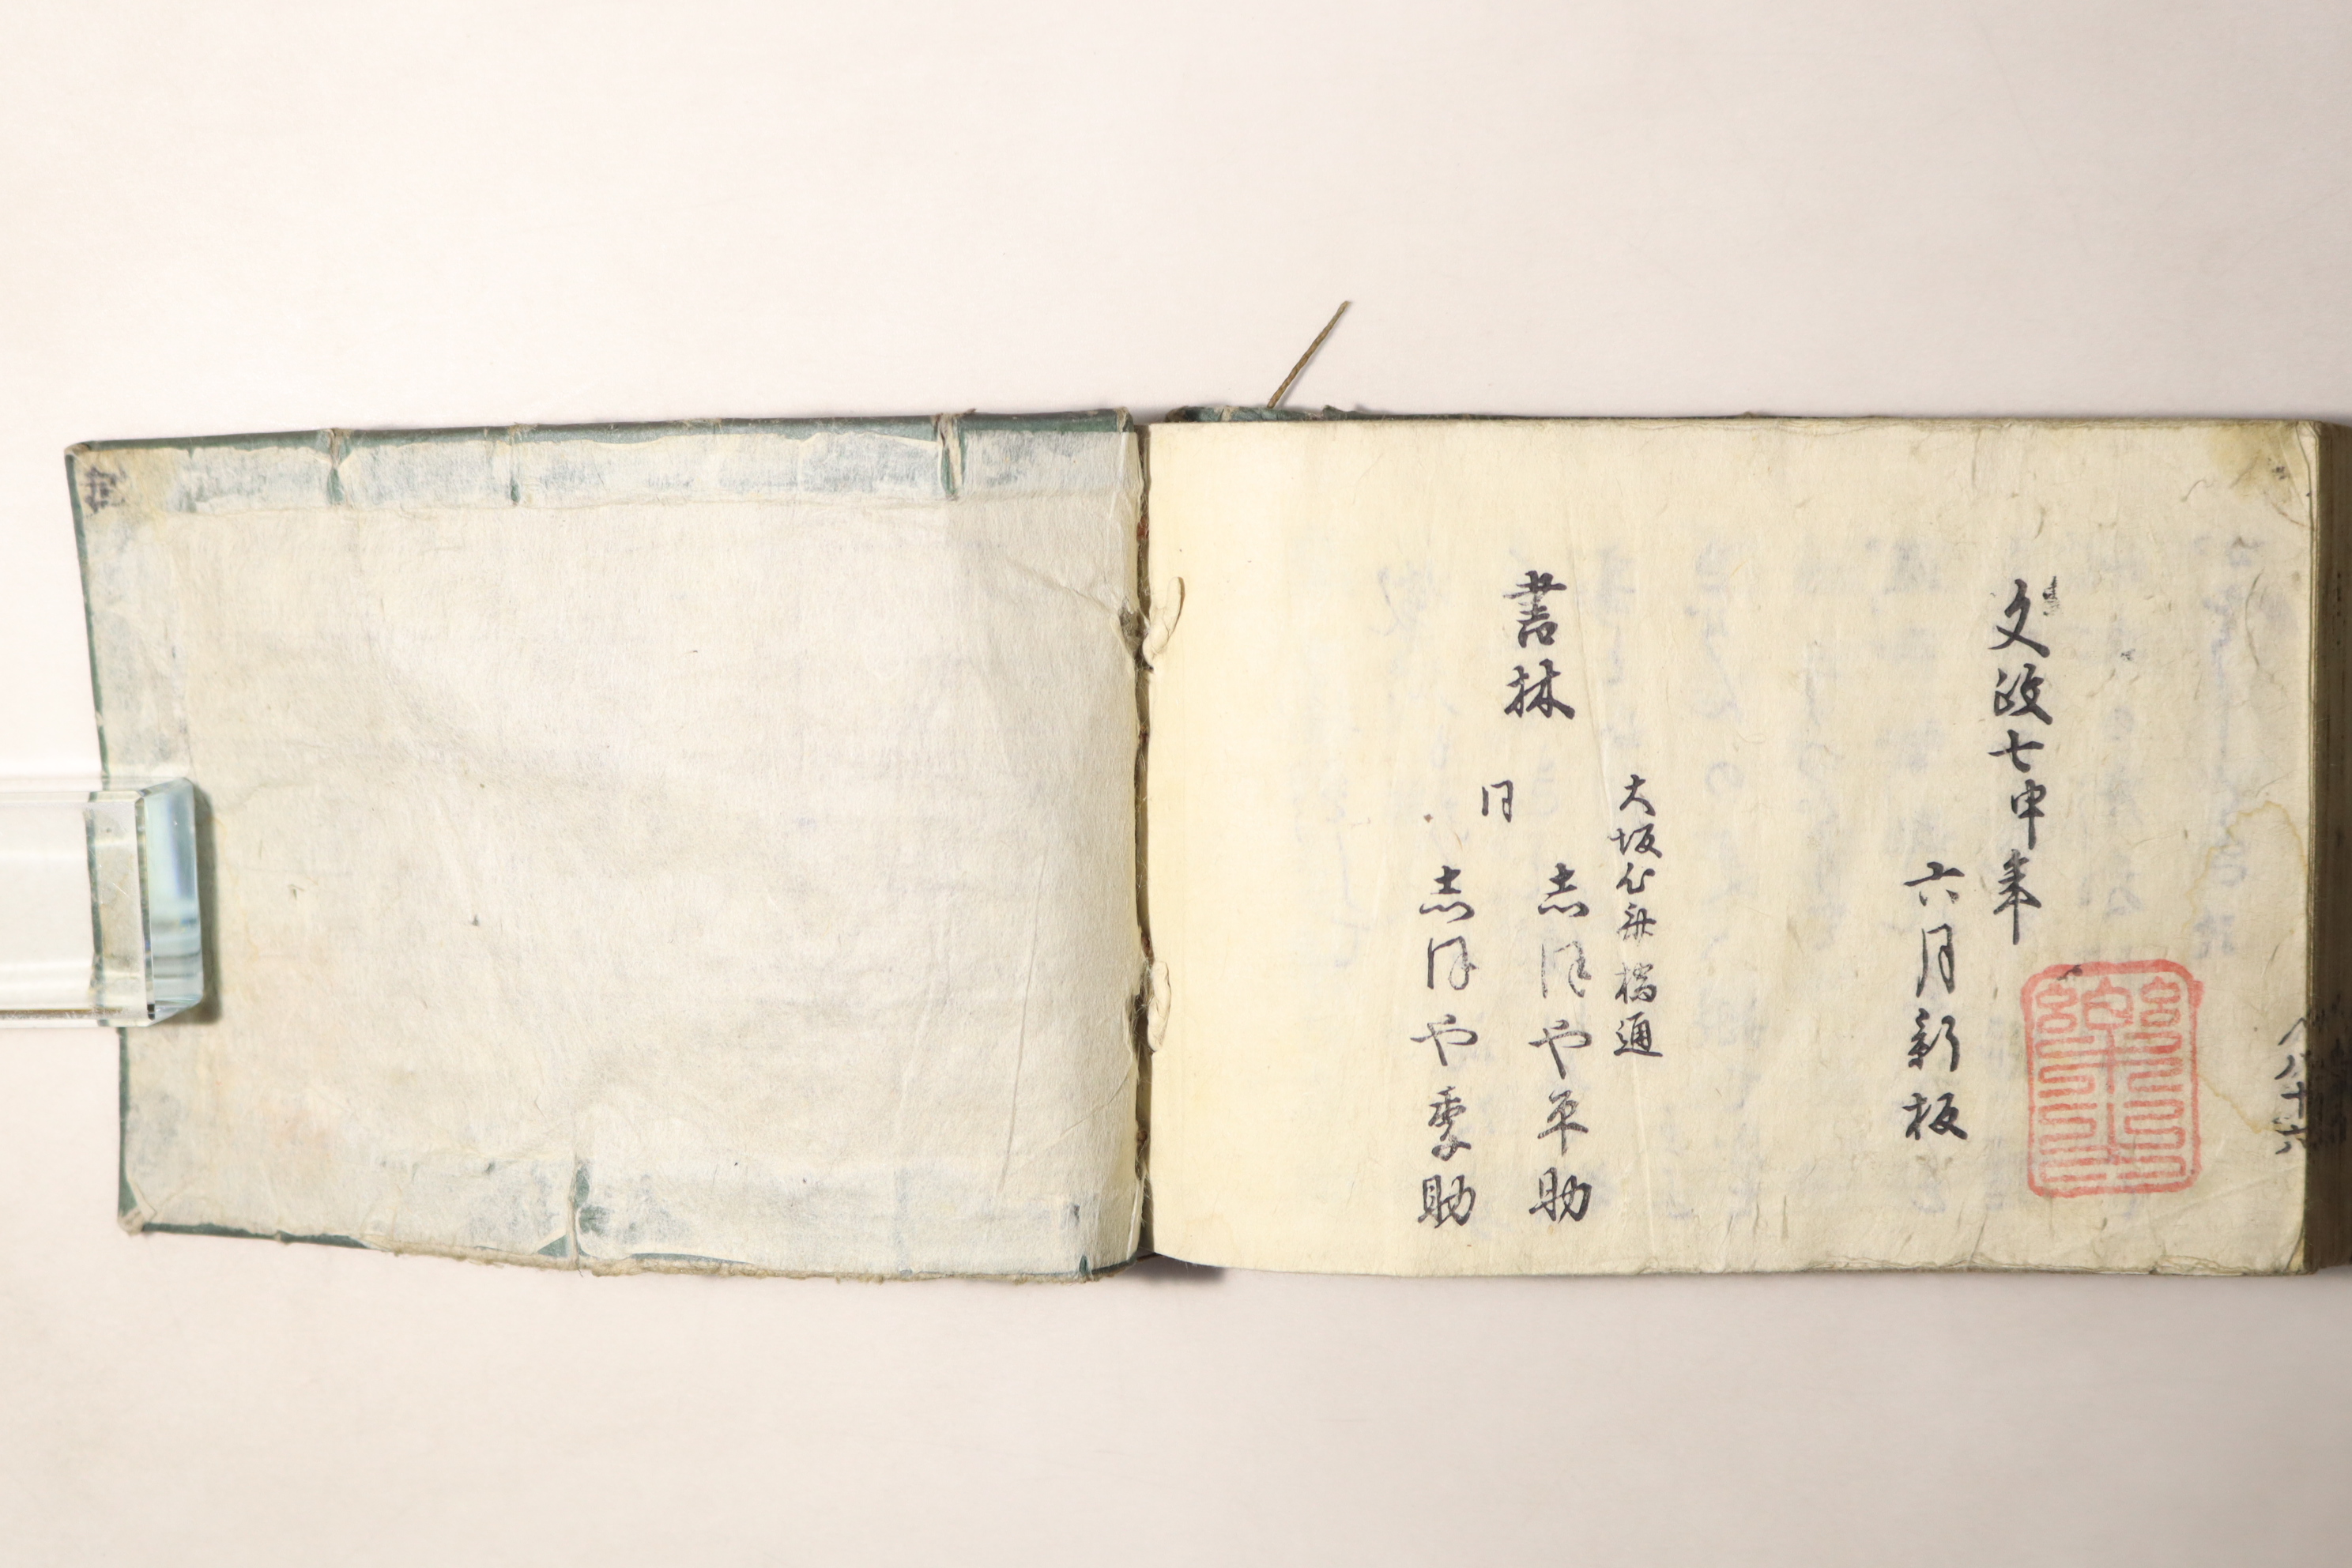 文政七申年
六月新板
大坂心斎橋通
書林
志ほや平助
同
志ほや季助